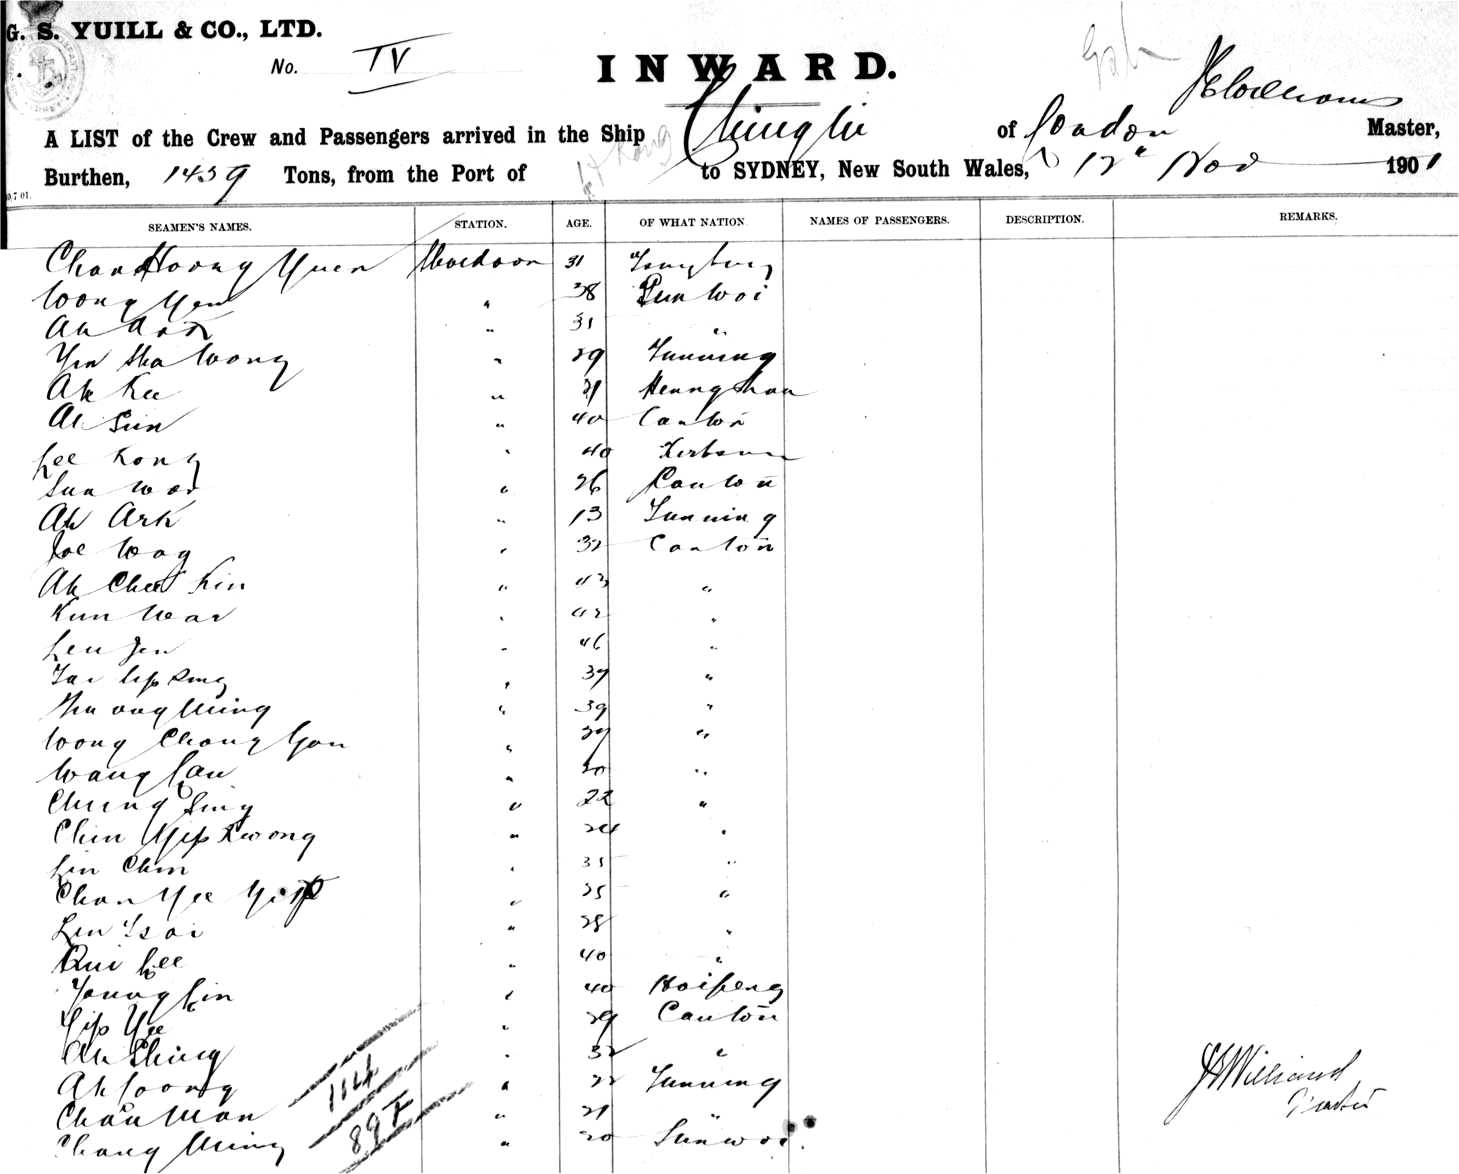 G. S. YUILL & CO., LTD.
No. IV
INWARD.
J Williams
A LIST of the Crew and Passengers arrived in the Ship Chingtu of London Master,
Burthen, 1439 Tons, from the Port of H Kong to SYDNEY, New South Wales, 12" Nov 1901
SEAMEN'S NAMES. STATION. AGE. OF WHAT NATION NAMES OF PASSENGERS. DESCRIPTION. REMARKS.
Chan Hoong Yuen 31
Wong Yew " 38 Sun Woi
Ah " 31 "
Yin Sha Wong " 29 Sunning
Ah Kee " 21 Heungshan
Ah Sun " 40 Canton
Lee Kong " 40
Sun War " 26 Canton
Ah Ark " 13 Sunning
Joe Wag " 32 Canton
Ah Chee Kin " 43 "
Kum Wear " 42 "
Leu Jen " 46 "
Yip Sing " 37 "
Ming " 39 "
Wong Chong Yon " 39 "
Wang Lau " 20 "
Chung Sing " 22 "
Chin Yip Kwong " 24 "
Lin Chin " 35 "
Chan Yee Yip " 25 "
Lin Tsoi " 28 "
Lee " 40 "
Young Lin " 40 Hoipeng
Yip Yee " 29 Canton
Ah Shing " 32 "
Ah Loong " 22 Sunning
Chan Man " 21 "
Chong Ming " 20 Sunwoi
114
89 F
J Williams
Master